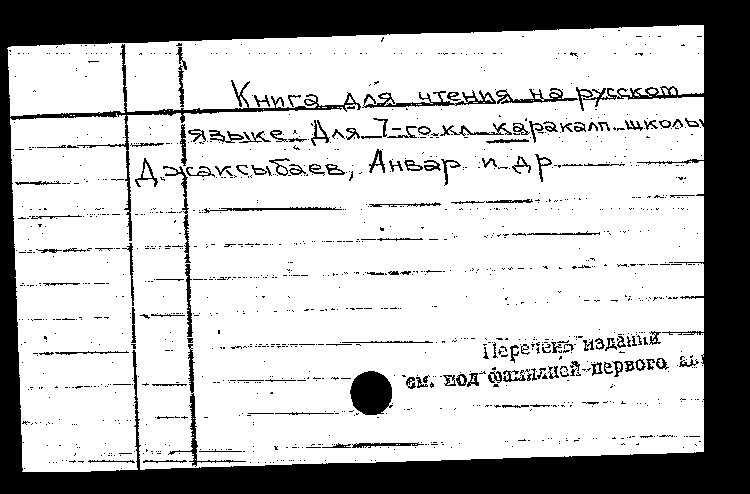 Книга для чтения на русском
языке: Для 7-го кл. каракалп. школы
Джаксыбаев, Анвар и др.
Перечень изданий
см. под фамилией первого